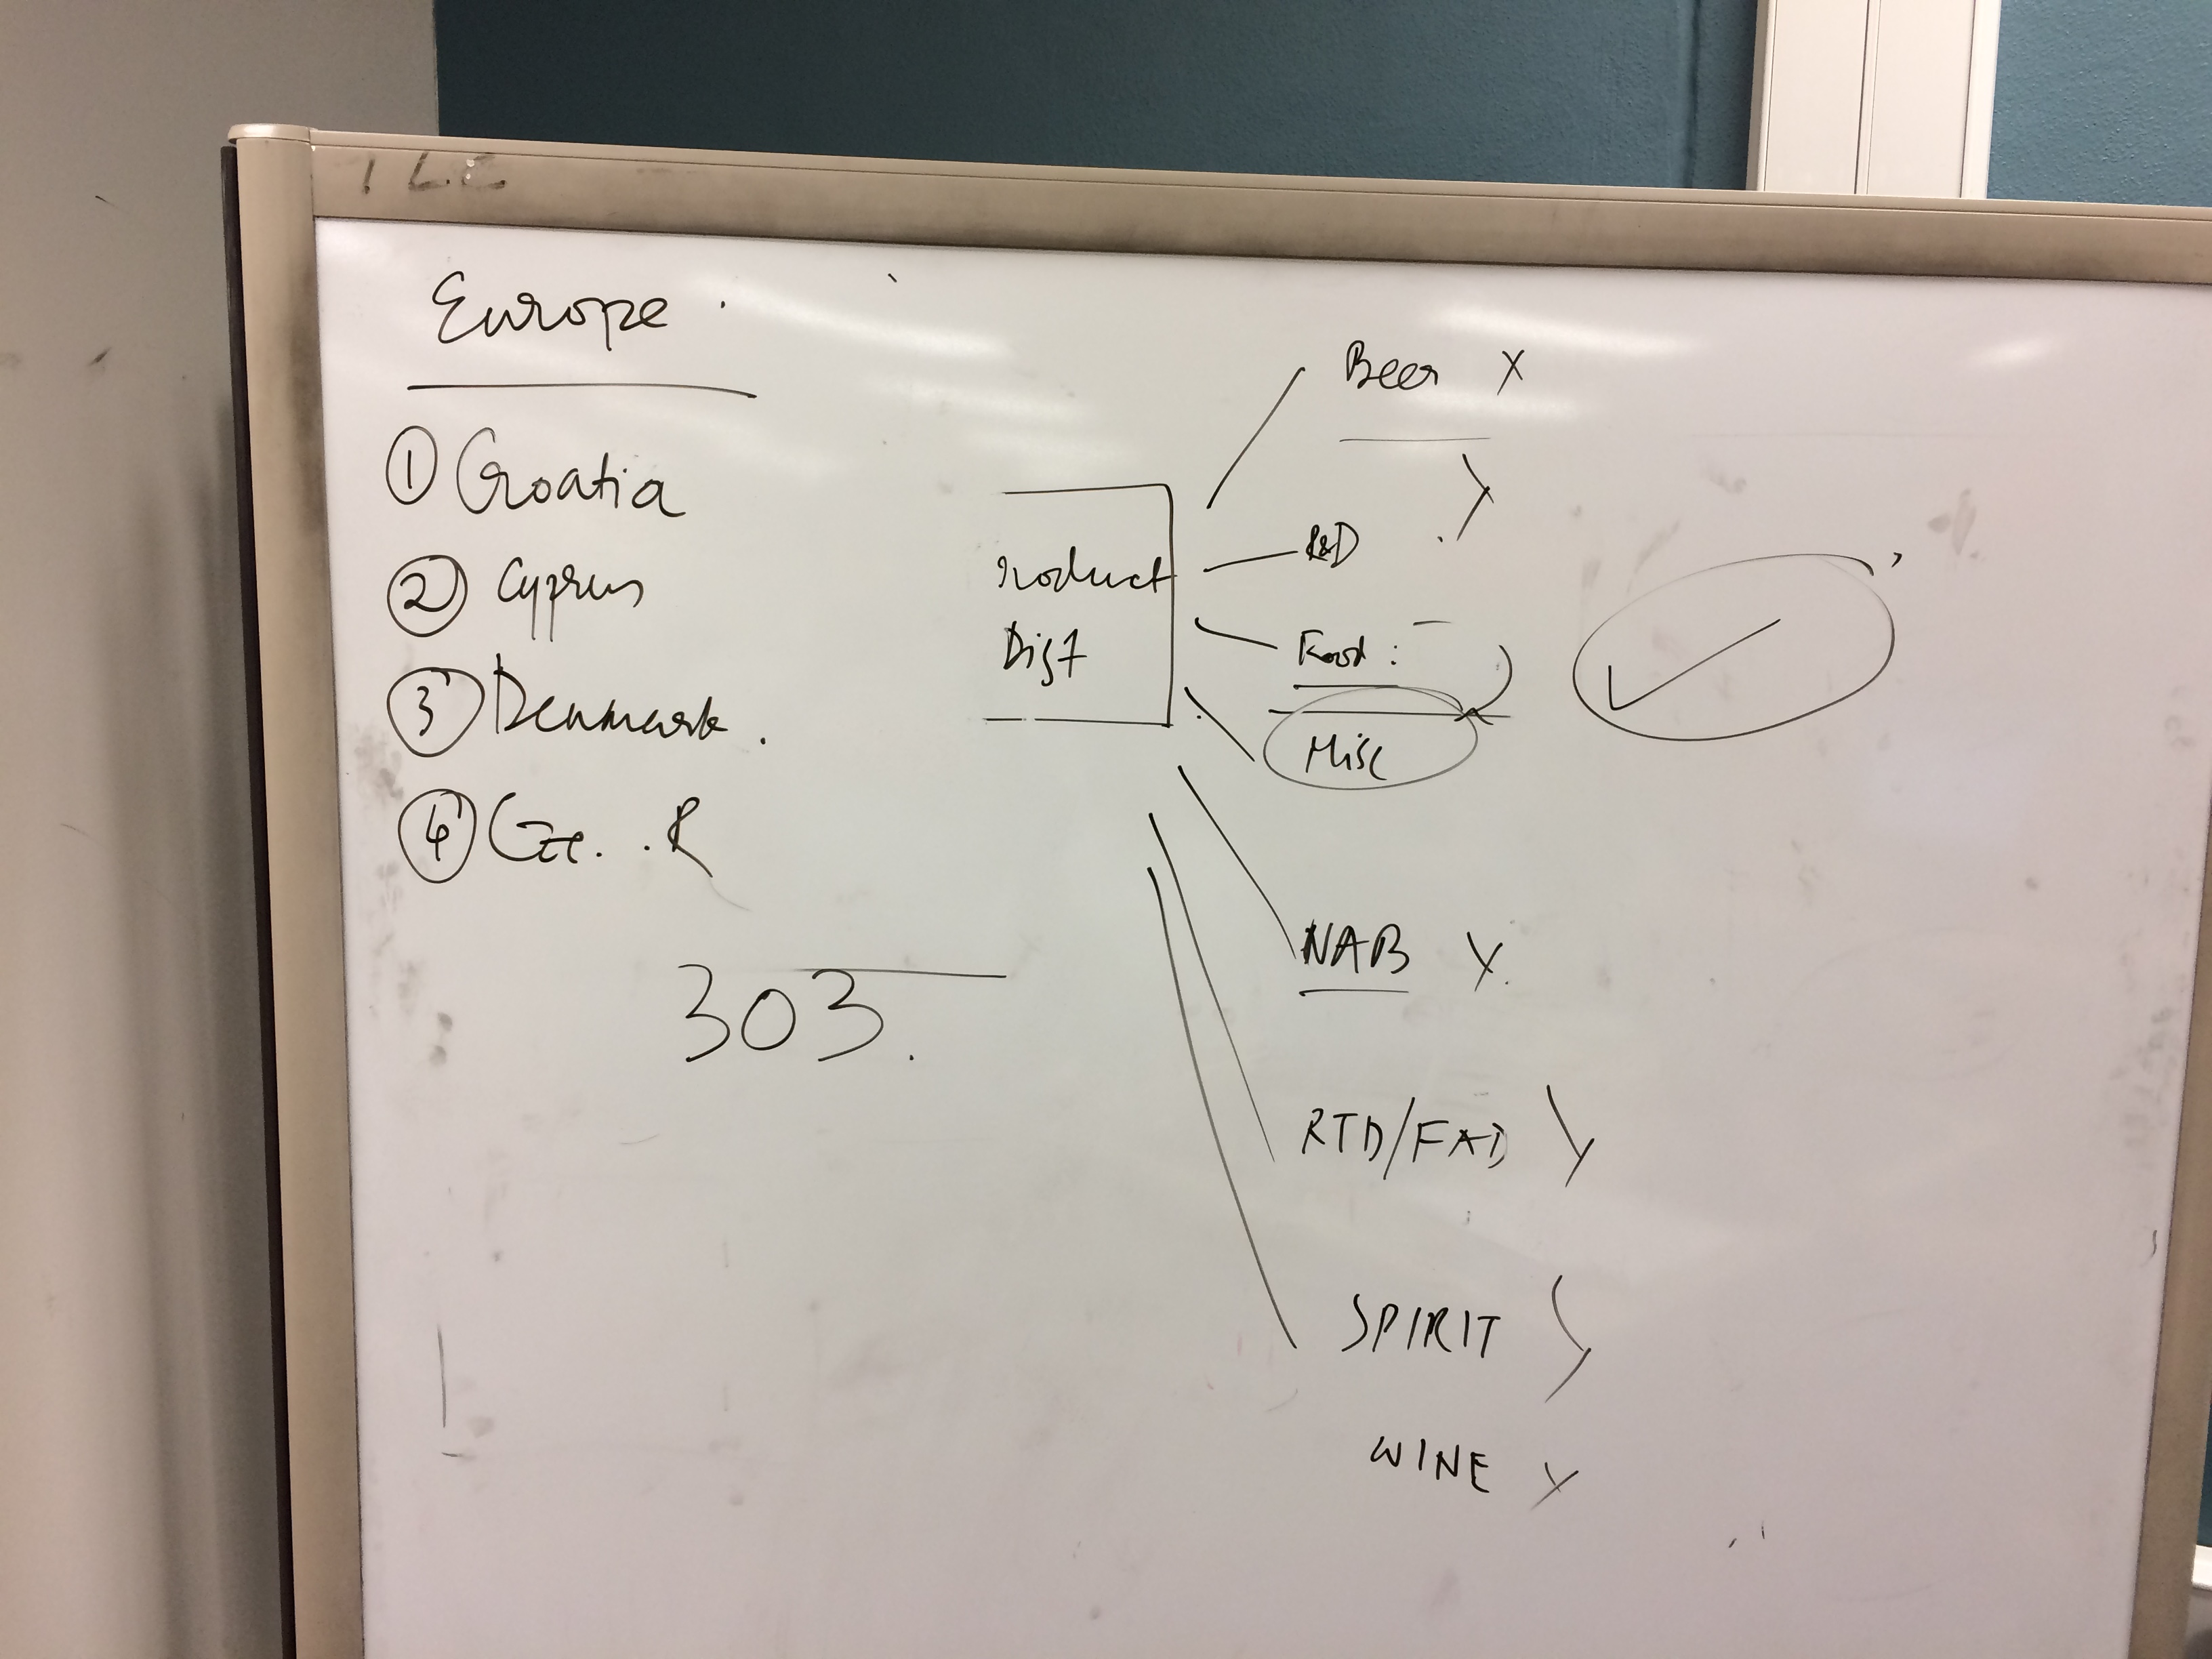 TLC
Europe
① Croatia
② Cyprus
③ Denmark.
④ Cze. . R
303.
Product
Dist
Beer X
R&D
Food :
Misc
NAB Y.
RTD/FAD Y
SPIRIT
WINE Y